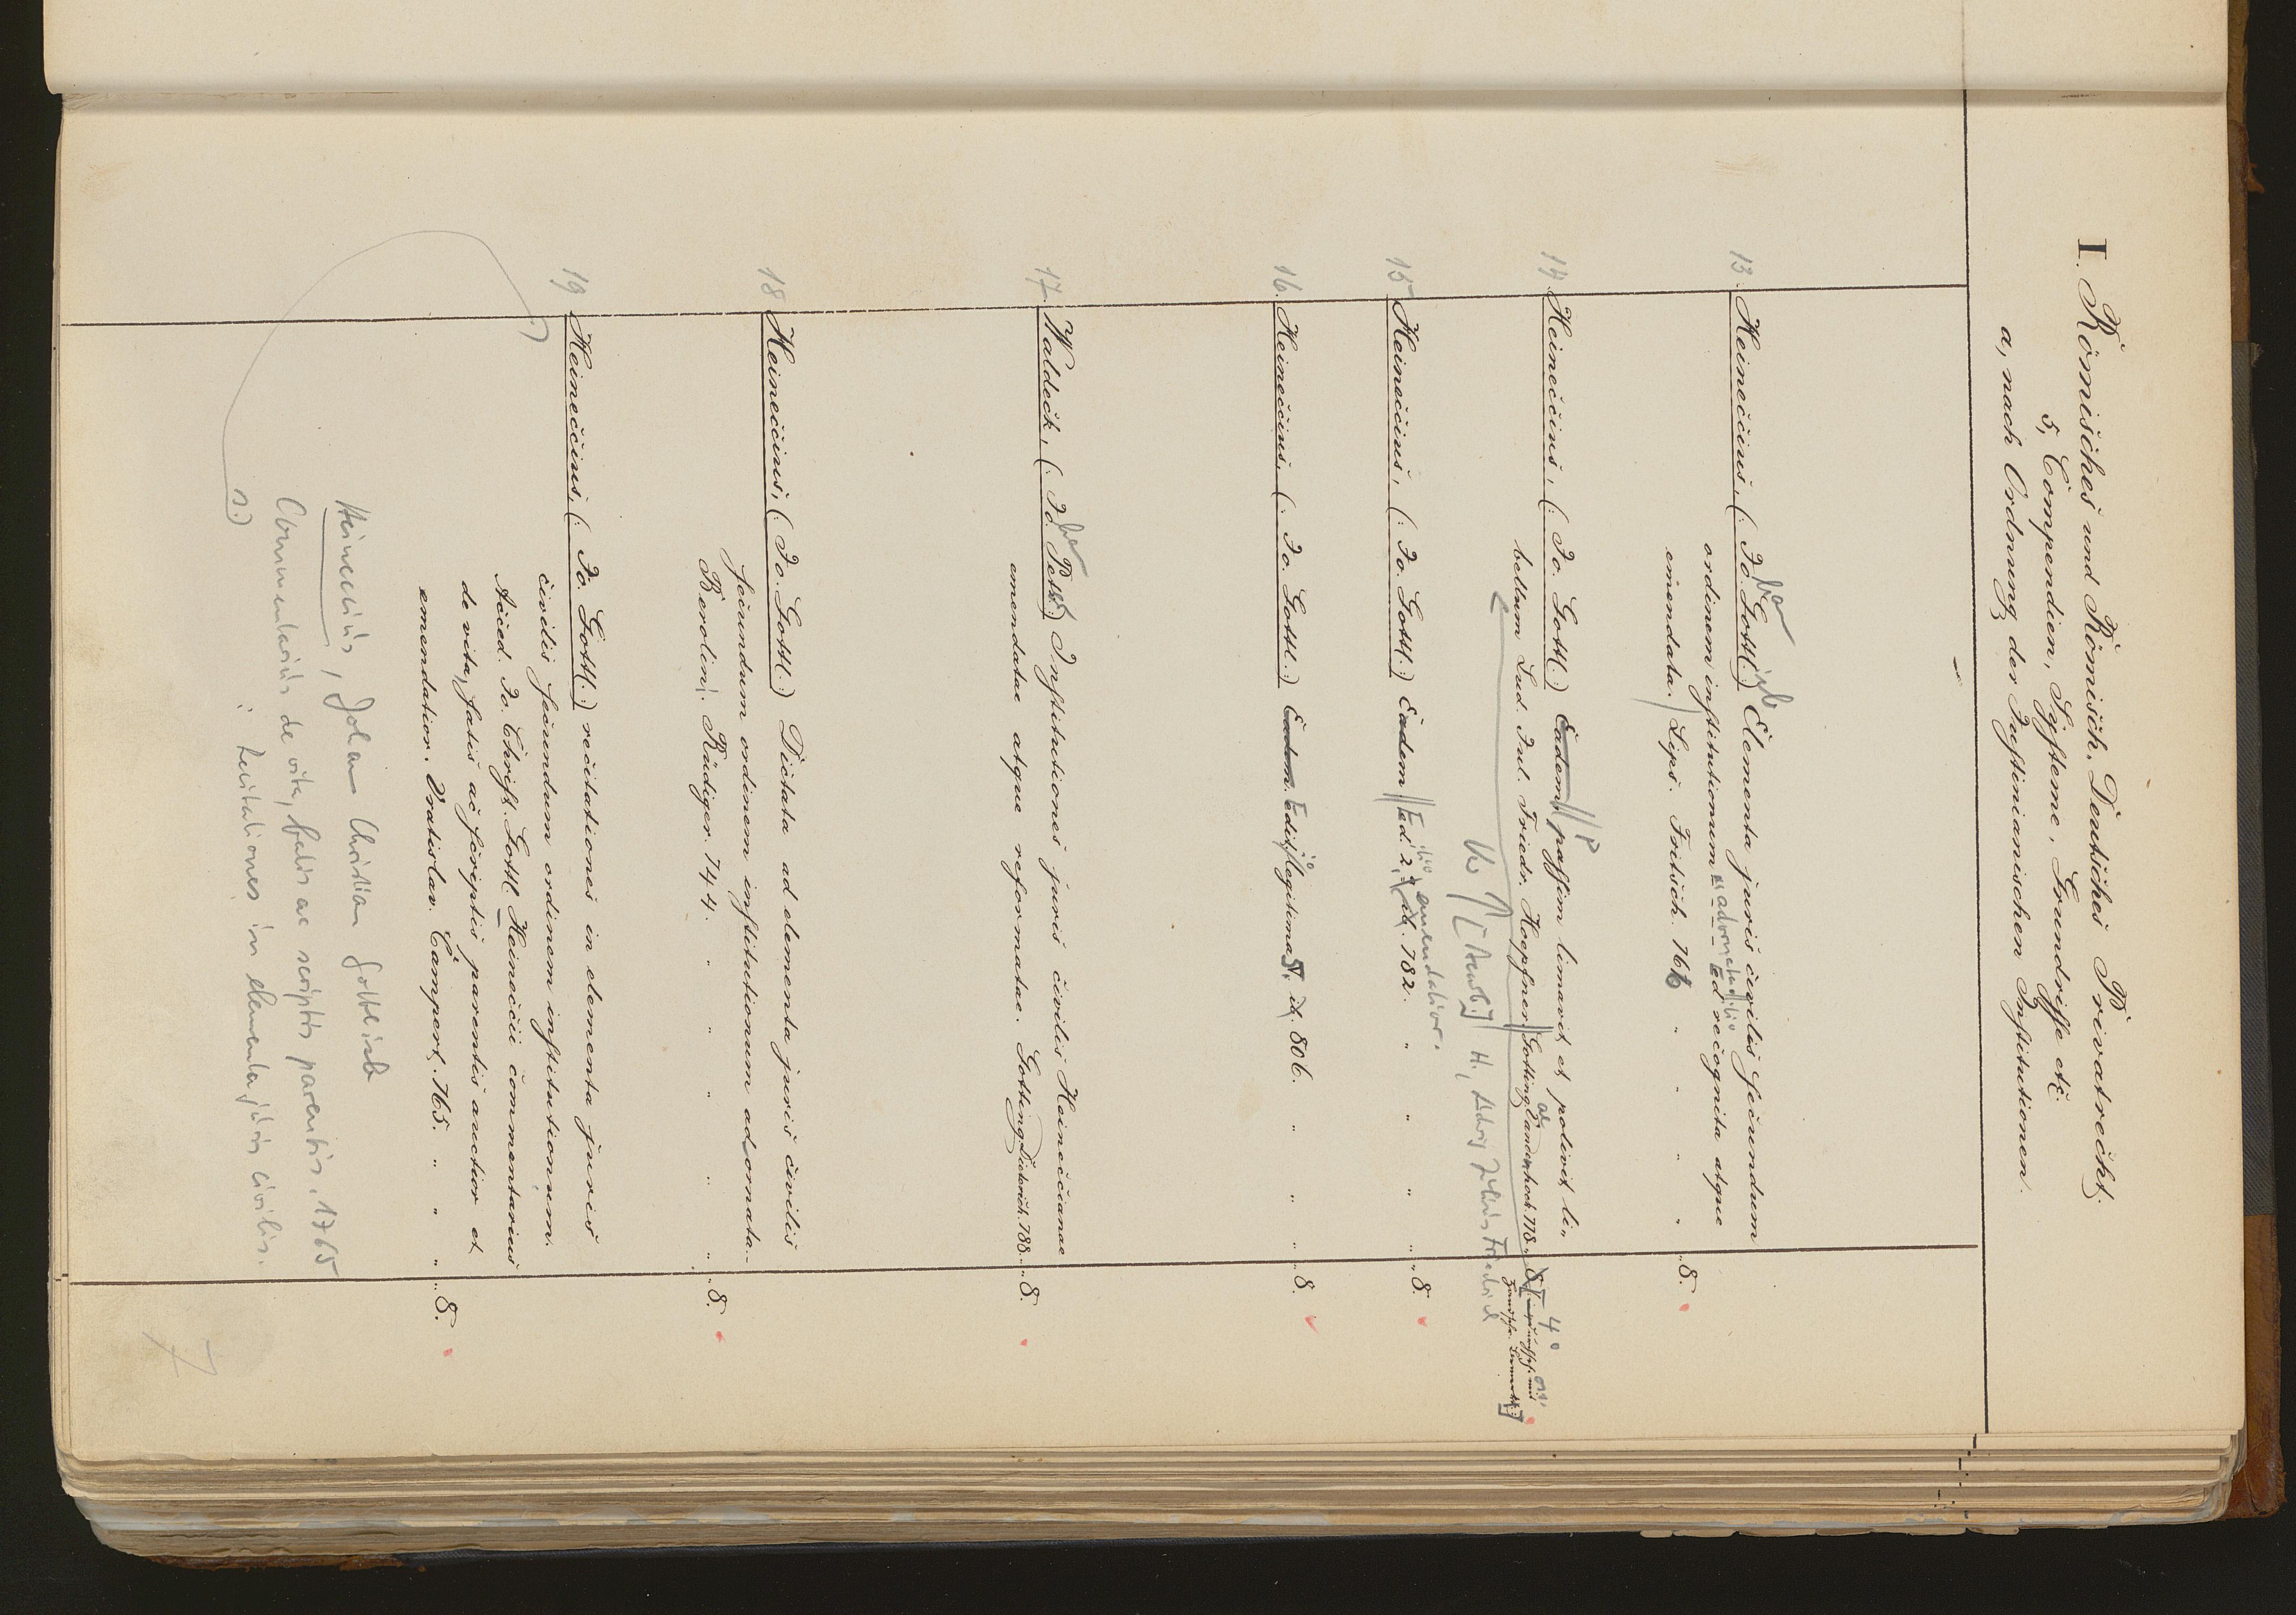 I. Römisches und Römisch. Deutsches Privatrecht.
5, Compendien, Systeme, Grundrisse etc.
a, nach Ordnung der Justinianischen Institutionen.
13. Heineccius, (: Jo. Gottl.:) Elementa juris civilis secundum
ordinem institutionum adornata Ed recognita atque
emendata. Lips. Fritsch. 766 " " " " 8.
14. Heineccius, (: Jo. Gottl.:) Eadem passim limavit et polivit li„
bellum Lud. Jul. Friedr. Hoepfner Gotting. Vandenhoek 778. 8. 4°
H., Ludwig Julius Friedrich
15 Heineccius, (: Jo. Gottl.:) Eadem Ed. 2. 782. " " " 8.
emendatior.
16. Heineccius, (: Jo. Gottl.:) Eadem. Editio legitima 5. 806. " " " 8.
17. Waldeck, (: Jo. Petr.:) Institutiones juris civilis Heineccianae
emendatae atque reformatae. Gotting. Dieterich. 788. „ 8.
18 Heineccius, (: Jo. Gottl.:) Dictata ad elementa juris civilis
secundum ordinem institutionum adornata.
Berolini. Rüdiger. 744. " " " " " 8.
19 Heineccius, (: Jo. Gottl.:) recitationes in elementa juris
civilis secundum ordinem institutionum.
Acced. Jo. Christ. Gottl. Heineccii commentarius
de vita, fatis ac scriptis parentis auctior et
emendatior. Vratislav. Campert. 765. " " " 8.
Heineccius, Johann Christian Gottlieb
Commentarius de vita, fatis ac scriptis parentis. 1765
: Recitationes in elementa juris civilis.
7